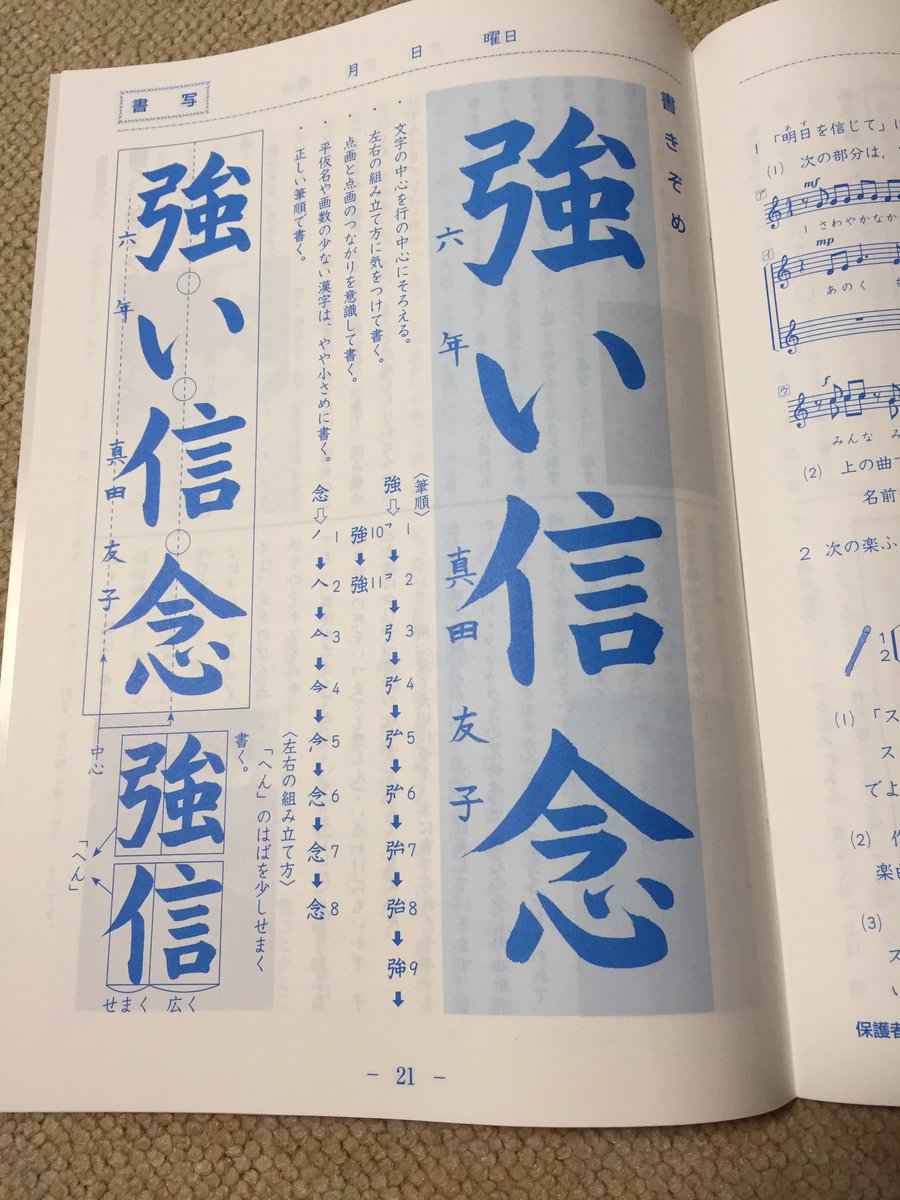 月 日 曜日
書写
書きぞめ
強い信念
六年 真田友子
・文字の中心を行の中心にそろえる。
・左右の組み立て方に気をつけて書く。
・点画と点画のつながりを意識して書く。
・平仮名や画数の少ない漢字は、やや小さめに書く。
・正しい筆順で書く。
〈筆順〉
強 1 2 3 4 5 6 7 8 9
10 11 強 強
念 1 2 3 4 5 6 7 8
〈左右の組み立て方〉
「へん」のはばを少しせまく
書く。
強い信念
六年 真田友子
中心
強
信
「へん」
せまく 広く
- 21 -
1 「明日を信じて」
あす
(1) 次の部分は,
ア
mf
1 さわやかなか
イ
mp
あのく
ウ
f
みんな み
(2) 上の曲
名前
2 次の楽ふ
1
2
(1) 「ス
ス
でよ
(2) 作
楽曲
(3)
ス
保護者